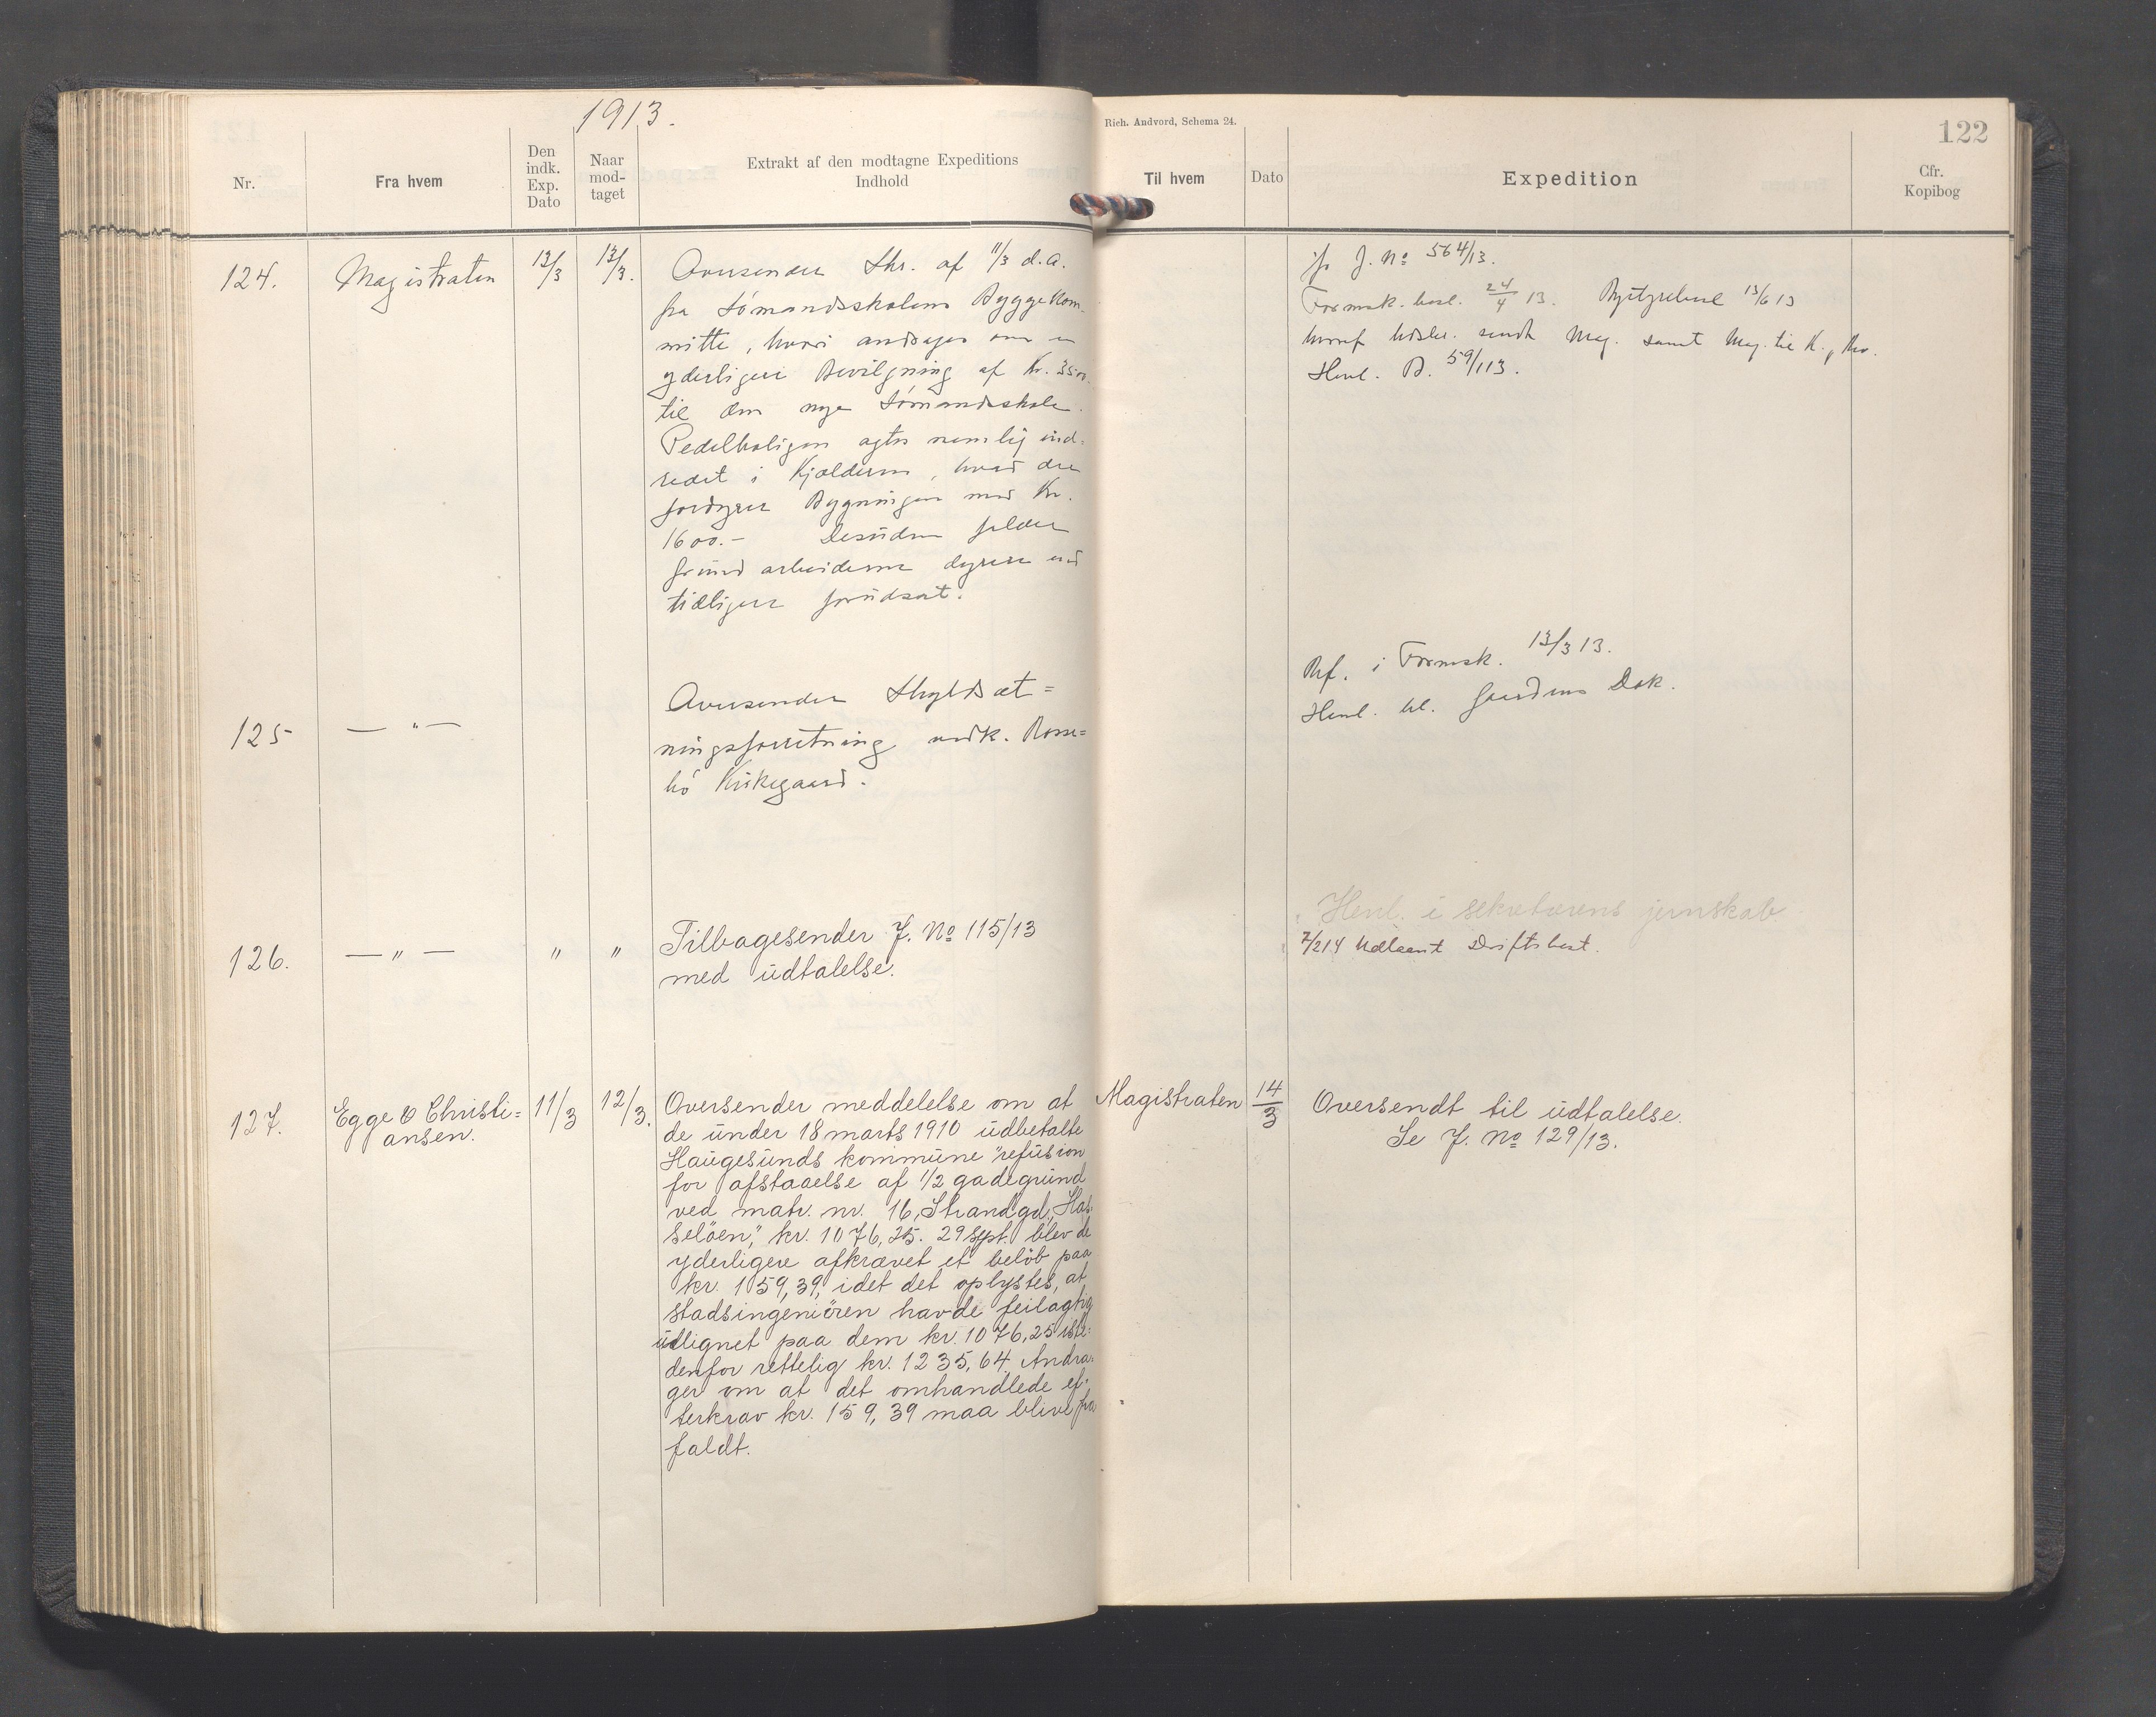 1913.
Rich. Andvord, Schema 24.
122
Nr.
Fra hvem
Den indk. Exp. Dato
Naar mod-taget
Extrakt af den modtagne Expeditions Indhold
Til hvem
Dato
Expedition
Cfr. Kopibog
124.
Magistraten
13/3
13/3.
Oversender Skr. af 11/3 d.a.
fra Sömandsskolens Byggekom-
mitte, hvori andrages om en
yderligere Bevilgning af Kr. 3500.
til den nye Sömandsskole.
Pedelboligen agtes nemlig ind-
redet i Kjælderen, hvad der
fordyrer Bygningen med Kr.
1600.- Desuden falder
Grundarbeiderne dyrere end
tidligere forudsat.
J. No 564/13.
Formsk. besl. 24/4 13. Bystyrebesl 13/6 13
sendt Mag. samt Mag. til K.
Henl. B. 59/113.
125
— " —
Oversender Skyldsæt=
ningsforretning vedk. Rosse=
bö Kirkegaard.
Ref. i Formsk. 13/3 13.
Henl. bl. Gaardens Dok.
126.
— " —
"
"
Tilbagesender J. No 115/13
med udtalelse.
Henl. i sekretærens jernskab
7/214 Udlaant Driftsbest.
127.
Egge & Christi=
ansen.
11/3
12/3.
Oversender meddelelse om at
de under 18 marts 1910 udbetalte
Haugesunds kommune "refusion
for afstaaelse af 1/2 gadegrund
ved matr. nr. 16, Strandgd., Has=
selöen," kr. 1076,25. 29 sept. blev de
yderligere afkrævet et belöb paa
kr. 159,39, idet det oplystes, at
stadsingeniören havde feilagtig
udlignet paa dem kr. 1076,25 iste=
denfor rettelig kr. 1235,64. Andra=
ger om at det omhandlede ef=
terkrav kr. 159,39 maa blive fra
faldt.
Magistraten
14/3
Oversendt til udtalelse.
Se J. No 129/13.